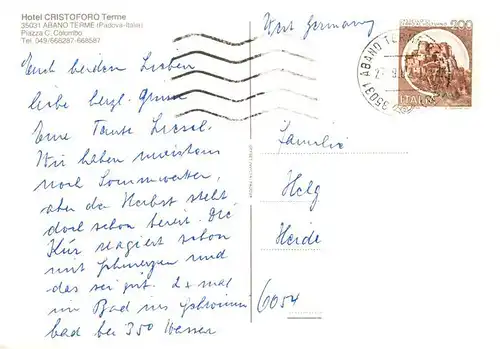 Hotel CRISTOFORO Terme
35031 ABANO TERME (Padova-Italia)
Piazza C. Colombo
Tel. 049/668287-668587
Euch beiden Lieben
liebe herzl. Grüsse
Eure Tante Liesel.
Wir haben meistens
noch Sommwetter,
aber der Herbst steht
doch schon bereit. Die
Kur reagiert schon
mit Schmerzen und
das sei gut. 2x mal
im Bad ins Schwimm
bad bei 35° Wasser
West Germany
200
ITALIA
35031 ABANO TERME
Familie
Helg
Heide
6054